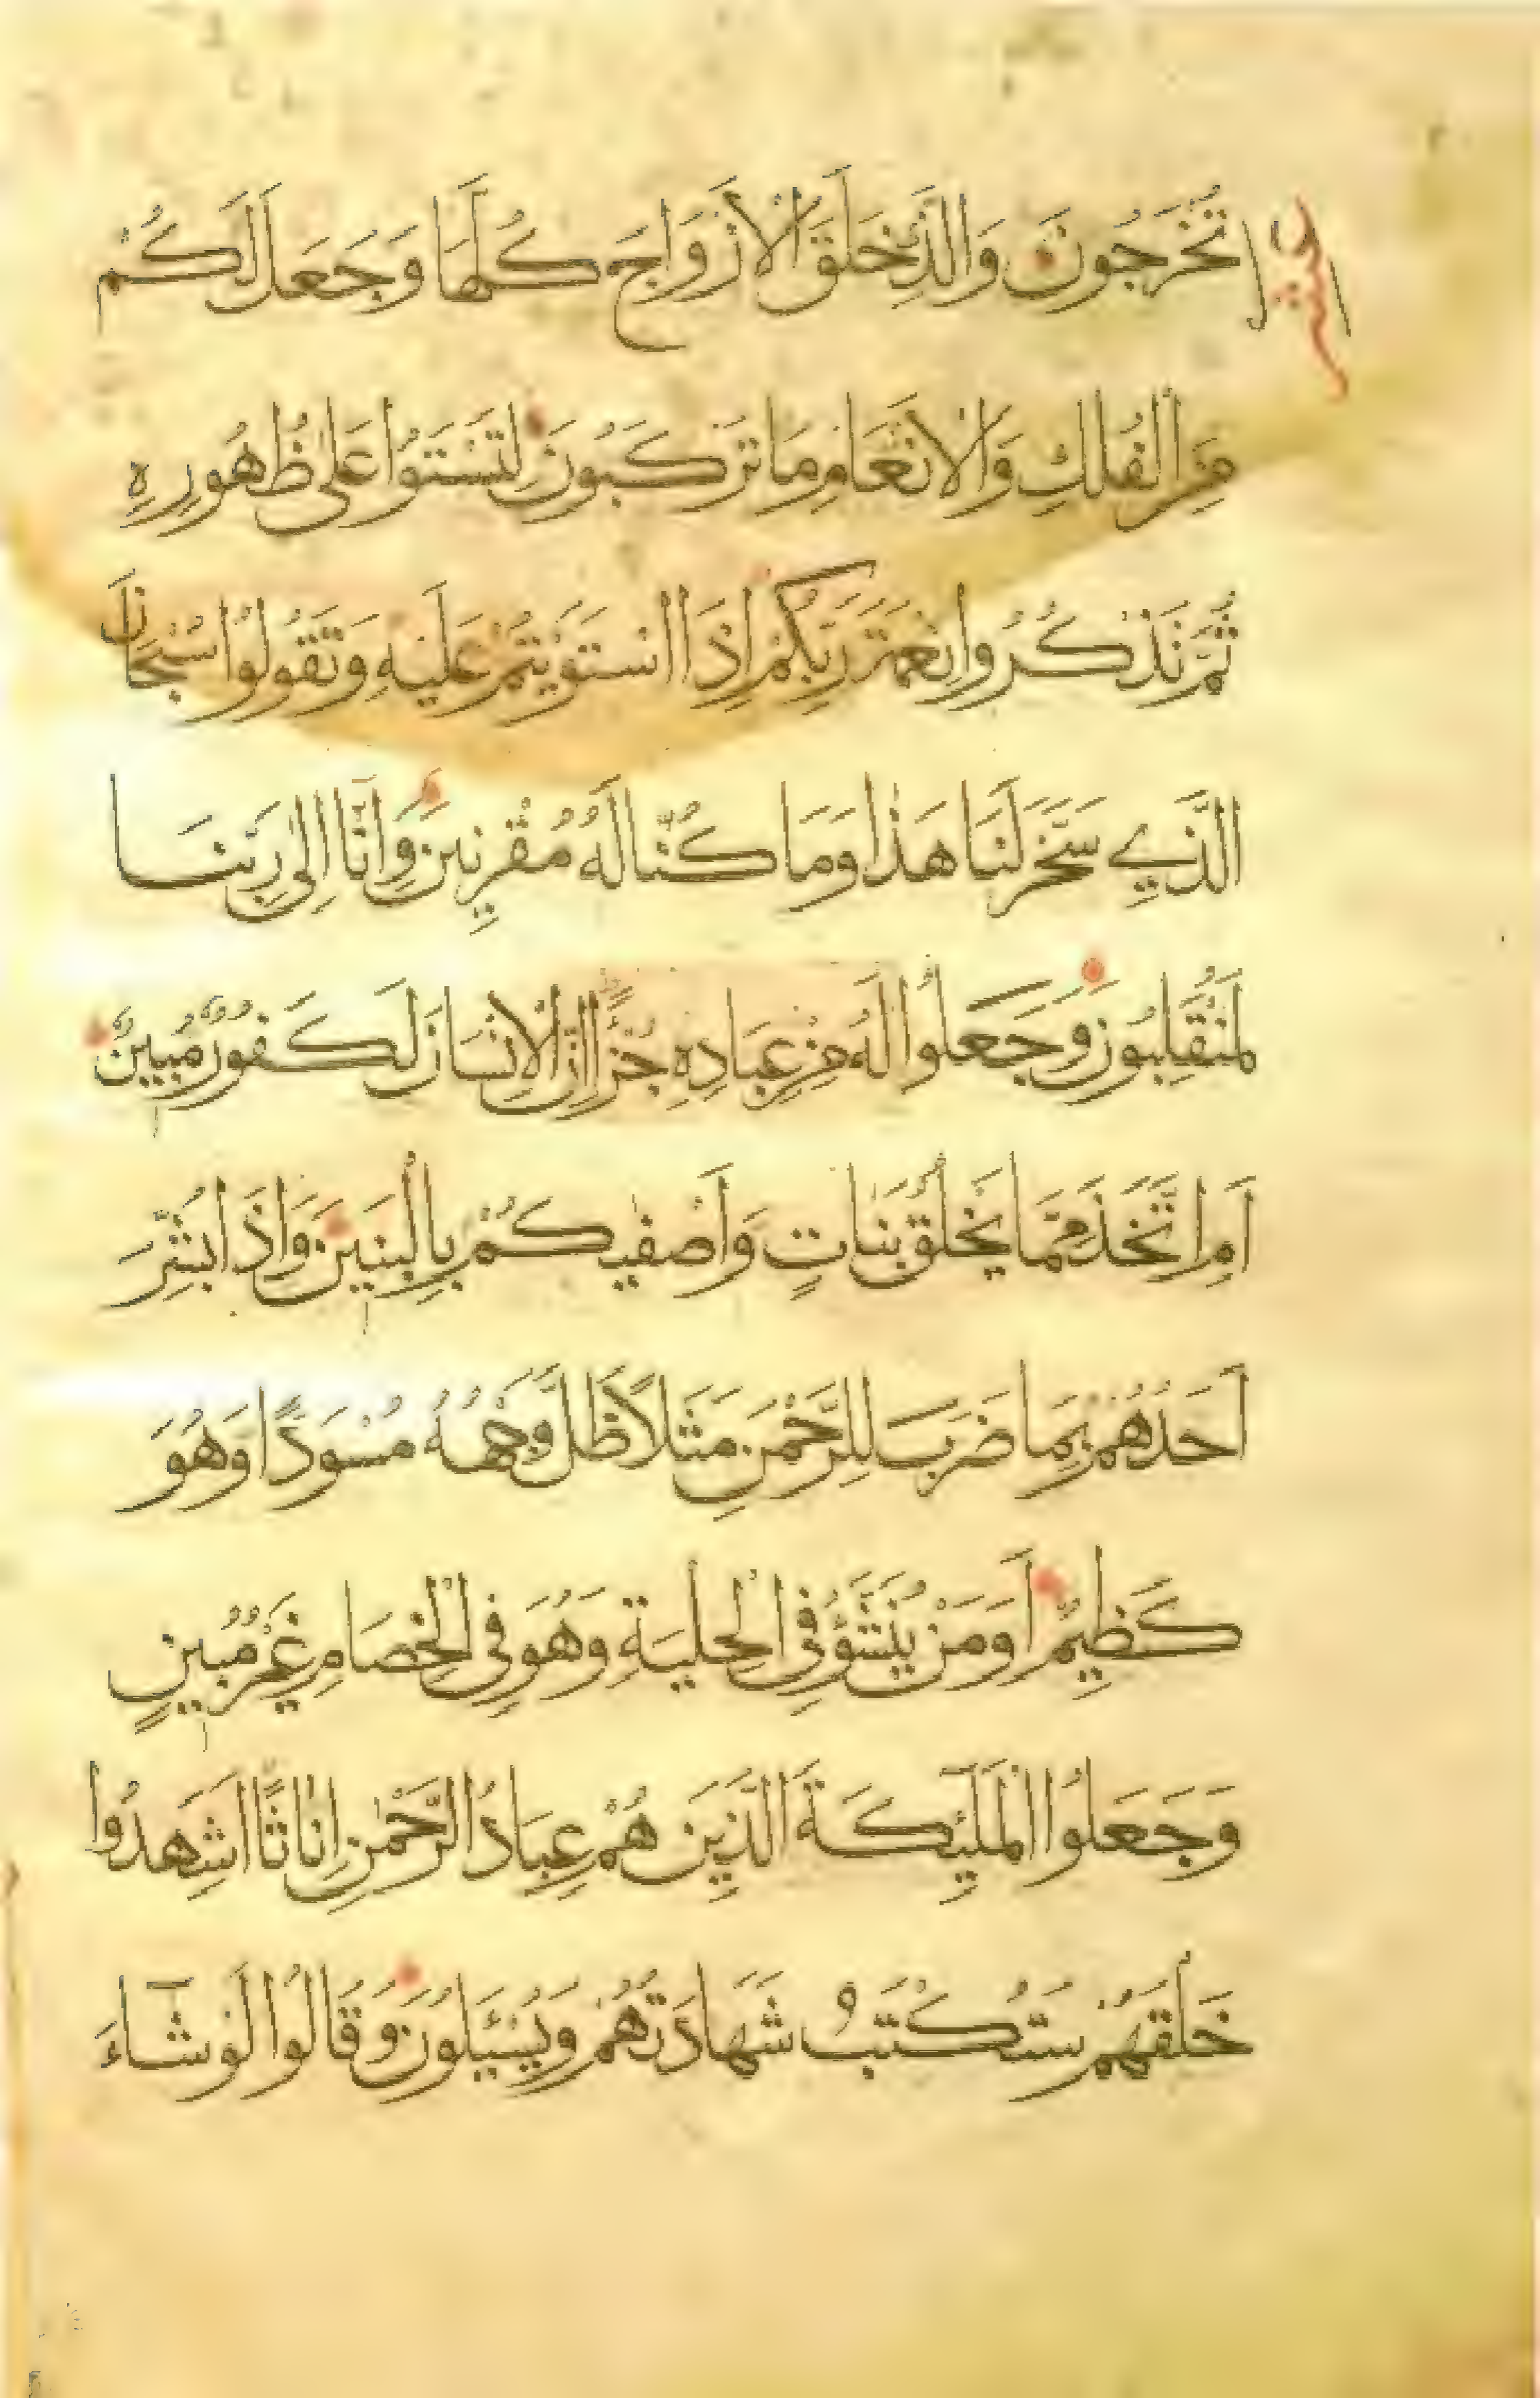 تُخْرَجُونَ وَالَّذِي خَلَقَ الْاَزْوَاجَ كُلَّهَا وَجَعَلَ لَكُمْ
مِنَ الْفُلْكِ وَالْاَنْعَامِ مَا تَرْكَبُونَ لِتَسْتَوُا عَلٰى ظُهُورِهِ
ثُمَّ تَذْكُرُوا نِعْمَةَ رَبِّكُمْ اِذَا اسْتَوَيْتُمْ عَلَيْهِ وَتَقُولُوا سُبْحَانَ
الَّذِي سَخَّرَ لَنَا هَذَا وَمَا كُنَّا لَهُ مُقْرِنِينَ وَاِنَّا اِلٰى رَبِّنَا
لَمُنْقَلِبُونَ وَجَعَلُوا لَهُ مِنْ عِبَادِهِ جُزْءًا اِنَّ الْاِنْسَانَ لَكَفُورٌ مُبِينٌ
اَمِ اتَّخَذَ مِمَّا يَخْلُقُ بَنَاتٍ وَاَصْفٰيكُمْ بِالْبَنِينَ وَاِذَا بُشِّرَ
اَحَدُهُمْ بِمَا ضَرَبَ لِلرَّحْمٰنِ مَثَلًا ظَلَّ وَجْهُهُ مُسْوَدًّا وَهُوَ
كَظِيمٌ اَوَمَنْ يُنَشَّؤُ فِي الْحِلْيَةِ وَهُوَ فِي الْخِصَامِ غَيْرُ مُبِينٍ
وَجَعَلُوا الْمَلٰئِكَةَ الَّذِينَ هُمْ عِبَادُ الرَّحْمٰنِ اِنَاثًا اَشَهِدُوا
خَلْقَهُمْ سَتُكْتَبُ شَهَادَتُهُمْ وَيُسْئَلُونَ وَقَالُوا لَوْ شَاءَ